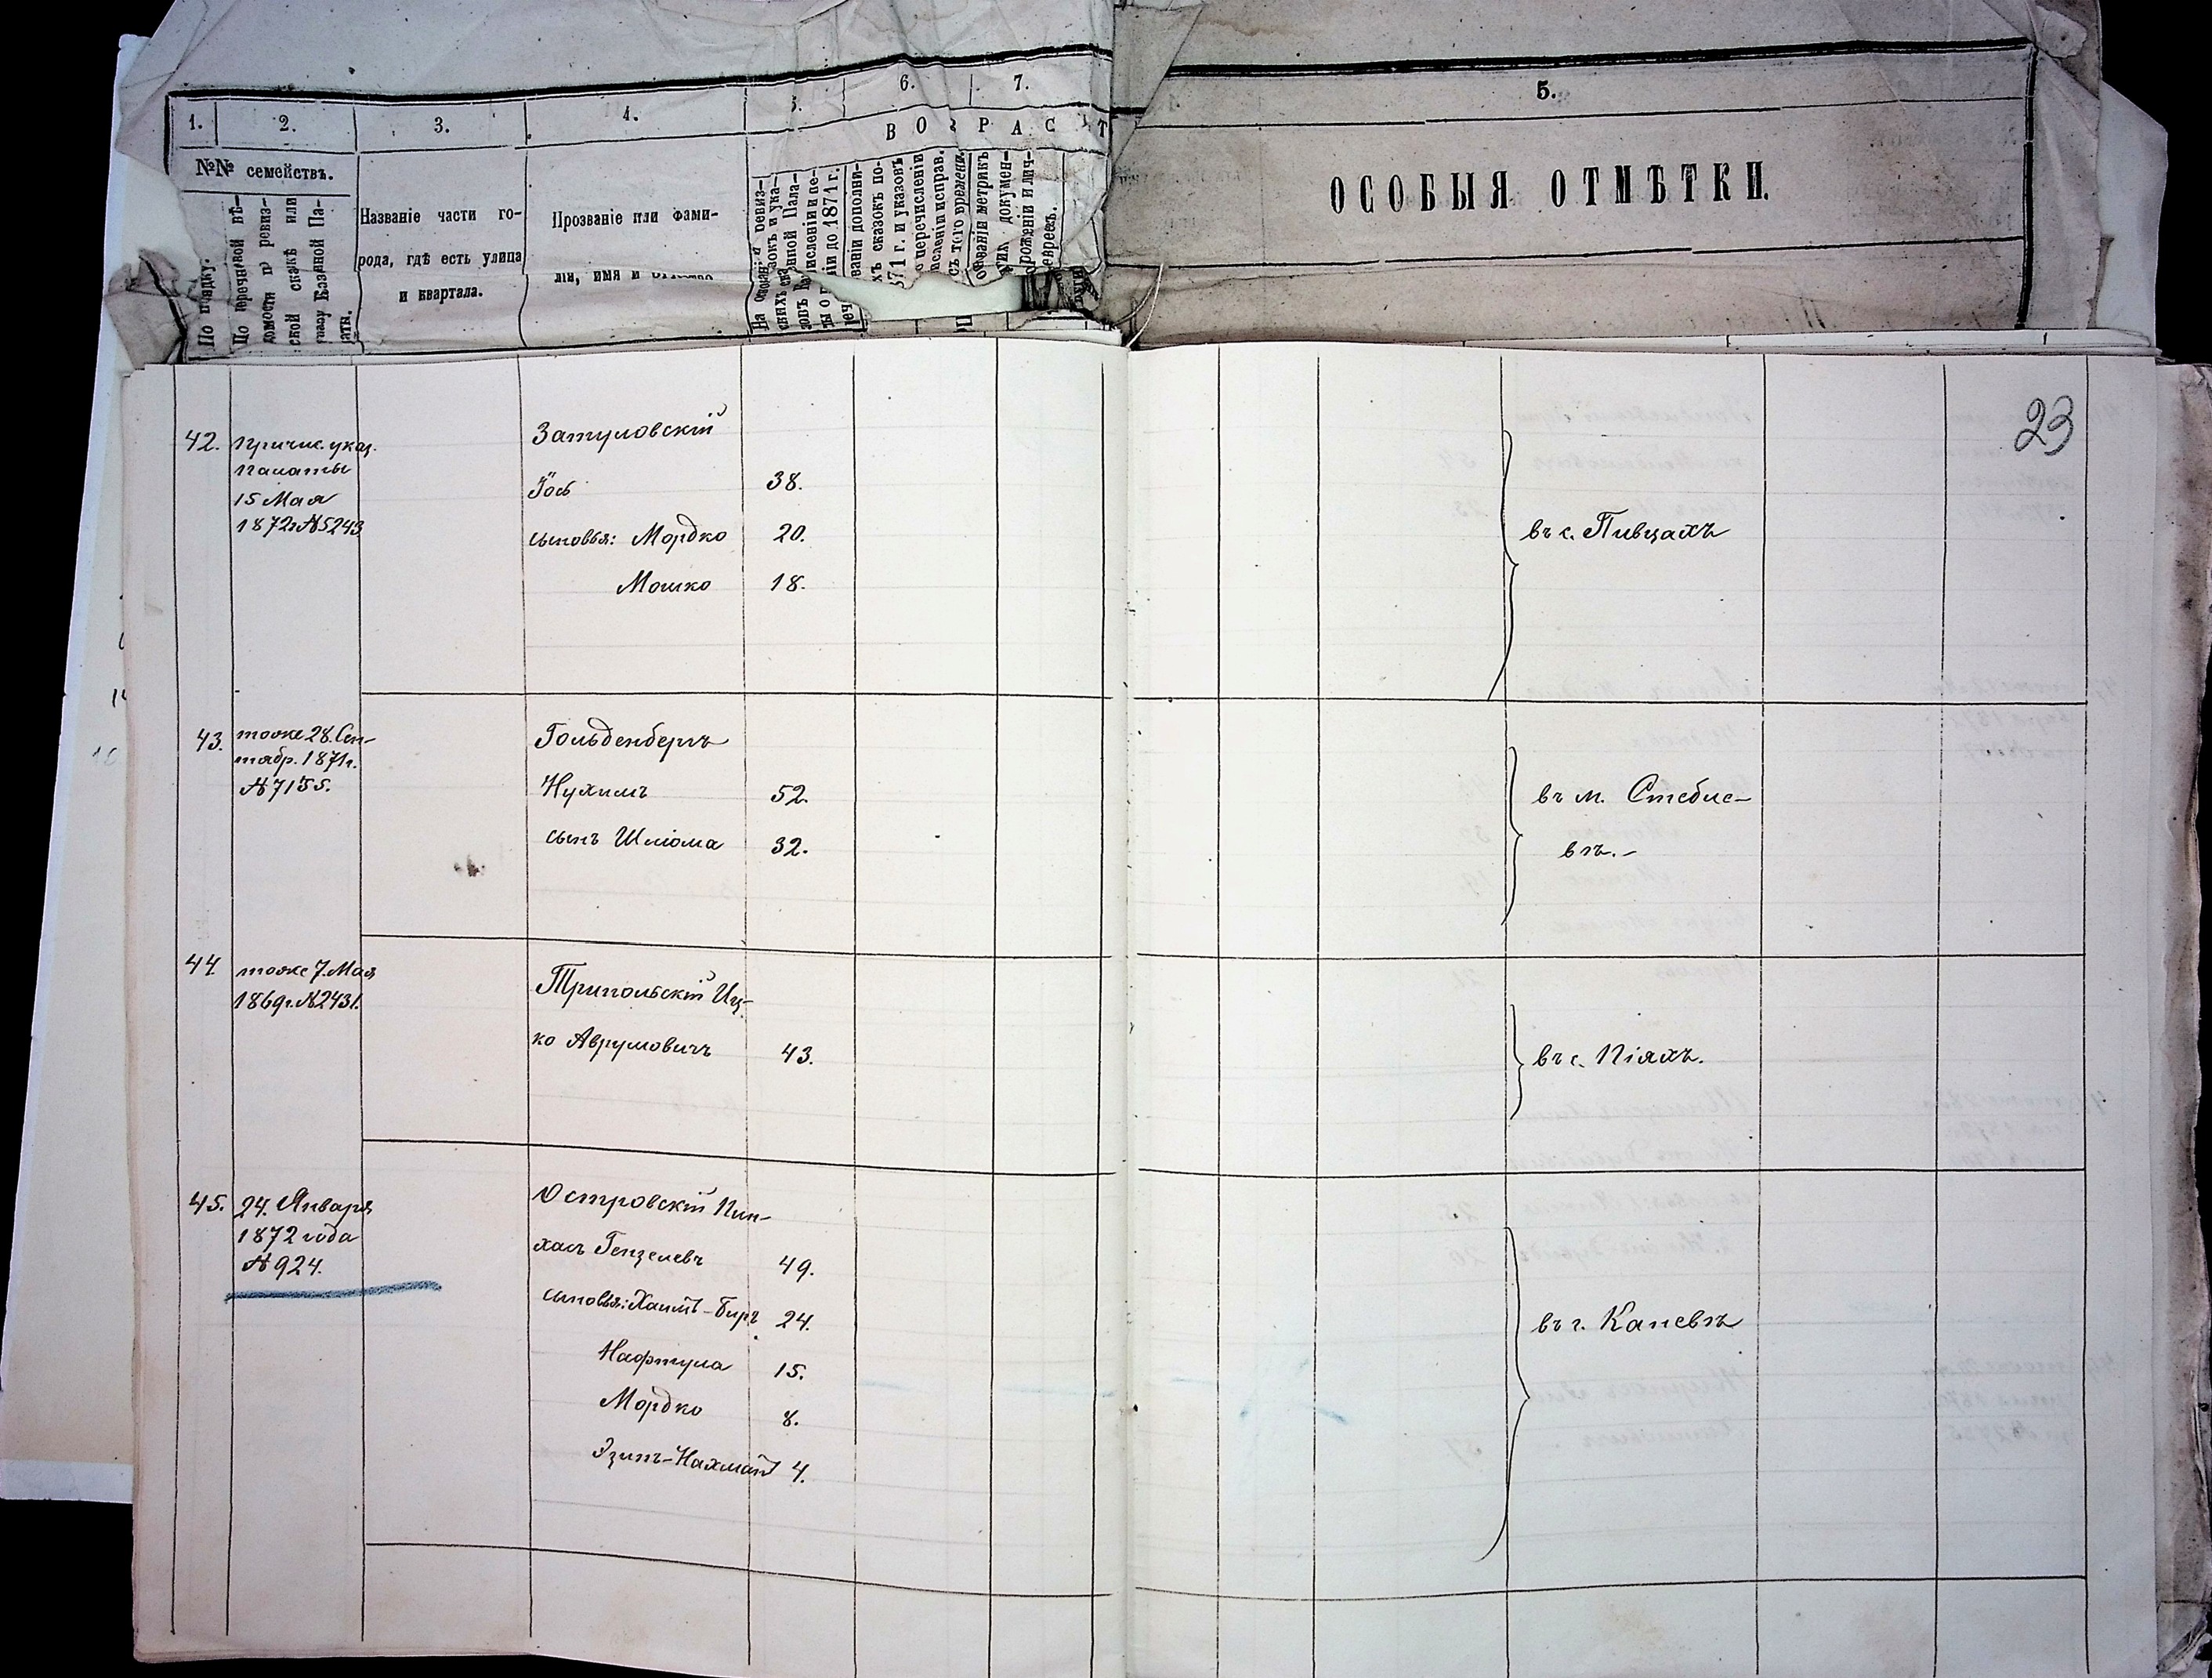 1. 2. 3. 4. 5. 6. 7.
№№ семействъ.
ВОЗРАСТ
По порядку.
По перечневой вѣ-
домости и ревиз-
ской сказкѣ или
указу Казенной Па-
латы.
Названіе части го-
рода, гдѣ есть улица
и квартала.
Прозваніе или фами-
лія, имя и отчество
5.
ОСОБЫЯ ОТМѢТКИ.
23
42. причис. указ.
палаты
15 Мая
1872г №5243
Затуловскій
Іось 38.
сыновья: Мордко 20.
Мошко 18.
въ с. Пивцахъ
43. тоже 28. Сен-
тябр. 1871г.
№7155.
Гольденбергъ
Нухимъ 52.
сынъ Шліома 32.
въ м. Стебле-
вѣ.-
44. тоже 7. Мая
1869г. №2431.
Трипольскій Иц-
ко Аврумовичъ 43.
въ с. Піяхъ.
45. 24. Января
1872 года
№924.
Островскій Пин-
хасъ Гензелевъ 49.
сыновья: Хаимъ-Биръ 24.
Нафтула 15.
Мордко 8.
Эзипъ-Нахманъ 4.
въ г. Каневѣ